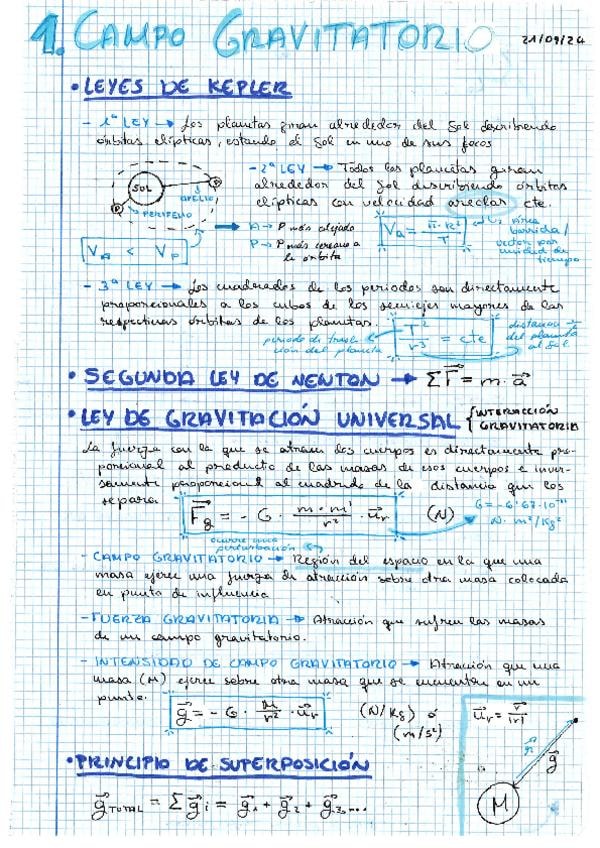 1. CAMPO GRAVITATORIO 21/09/24
• LEYES DE KEPLER
- 1ª LEY → Los planetas giran alrededor del Sol describiendo
órbitas elípticas, estando el Sol en uno de sus focos
- 2ª LEY → Todos los planetas giran
alrededor del Sol describiendo órbitas
elípticas con velocidad areolar cte.
SOL
P
P
AFELIO
PERIFELIO
A → P más alejado
P → P más cercano a
la órbita
V_A < V_P
V_a = π·R²/T
área
barrida/
vector por
unidad de
tiempo
- 3ª LEY → Los cuadrados de los periodos son directamente
proporcionales a los cubos de los semiejes mayores de las
respectivas órbitas de los planetas.
periodo de trasla-
ción del planeta
T²/r³ = cte
distancia
del planeta
al Sol
• SEGUNDA LEY DE NEWTON → ΣF⃗ = m·a⃗
• LEY DE GRAVITACIÓN UNIVERSAL { INTERACCIÓN
GRAVITATORIA
La fuerza con la que se atraen dos cuerpos es directamente pro-
porcional al producto de las masas de esos cuerpos e inver-
samente proporcional al cuadrado de la distancia que los
separa.
F⃗g = - G · m·m'/r² · u⃗r (N)
G = -6'67·10⁻¹¹
N·m²/Kg²
ocurre una
perturbación
- CAMPO GRAVITATORIO → Región del espacio en la que una
masa ejerce una fuerza de atracción sobre otra masa colocada
en punto de influencia
- FUERZA GRAVITATORIA → Atracción que sufren las masas
de un campo gravitatorio.
- INTENSIDAD DE CAMPO GRAVITATORIO → Atracción que una
masa (M) ejerce sobre otra masa que se encuentra en un
punto.
g⃗ = - G · M/r² · u⃗r (N/Kg) ó
(m/s²)
u⃗r = r⃗/|r⃗|
g⃗
M
• PRINCIPIO DE SUPERPOSICIÓN
g⃗TOTAL = Σg⃗i = g⃗1 + g⃗2 + g⃗3...